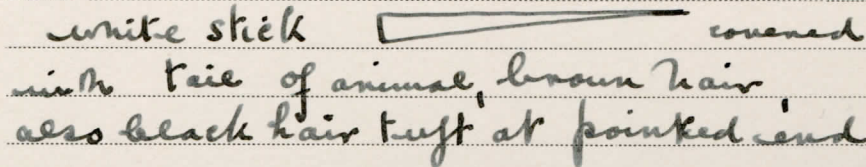 white stick covered
with tail of animal, brown hair,
also black hair tuft at pointed end